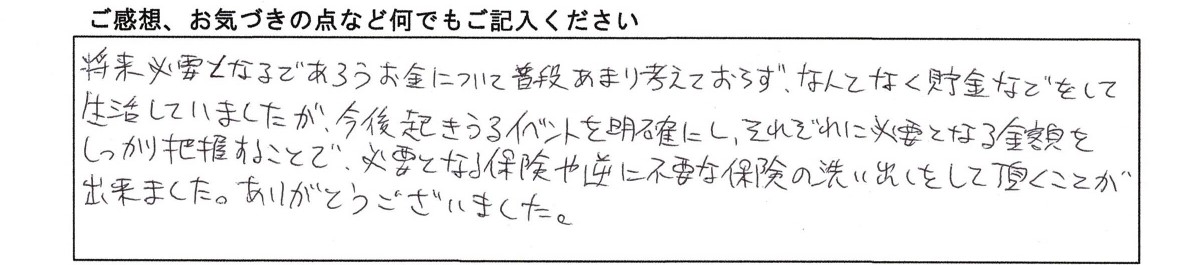 ご感想、お気づきの点など何でもご記入ください
将来必要となるであろうお金について普段あまり考えておらず、なんてなく貯金などをして
生活していましたが、今後起きうるイベントを明確にし、それぞれに必要となる金額を
しっかり把握することで、必要となる保険や逆に不要な保険の洗い出しをして頂くことが
出来ました。ありがとうございました。